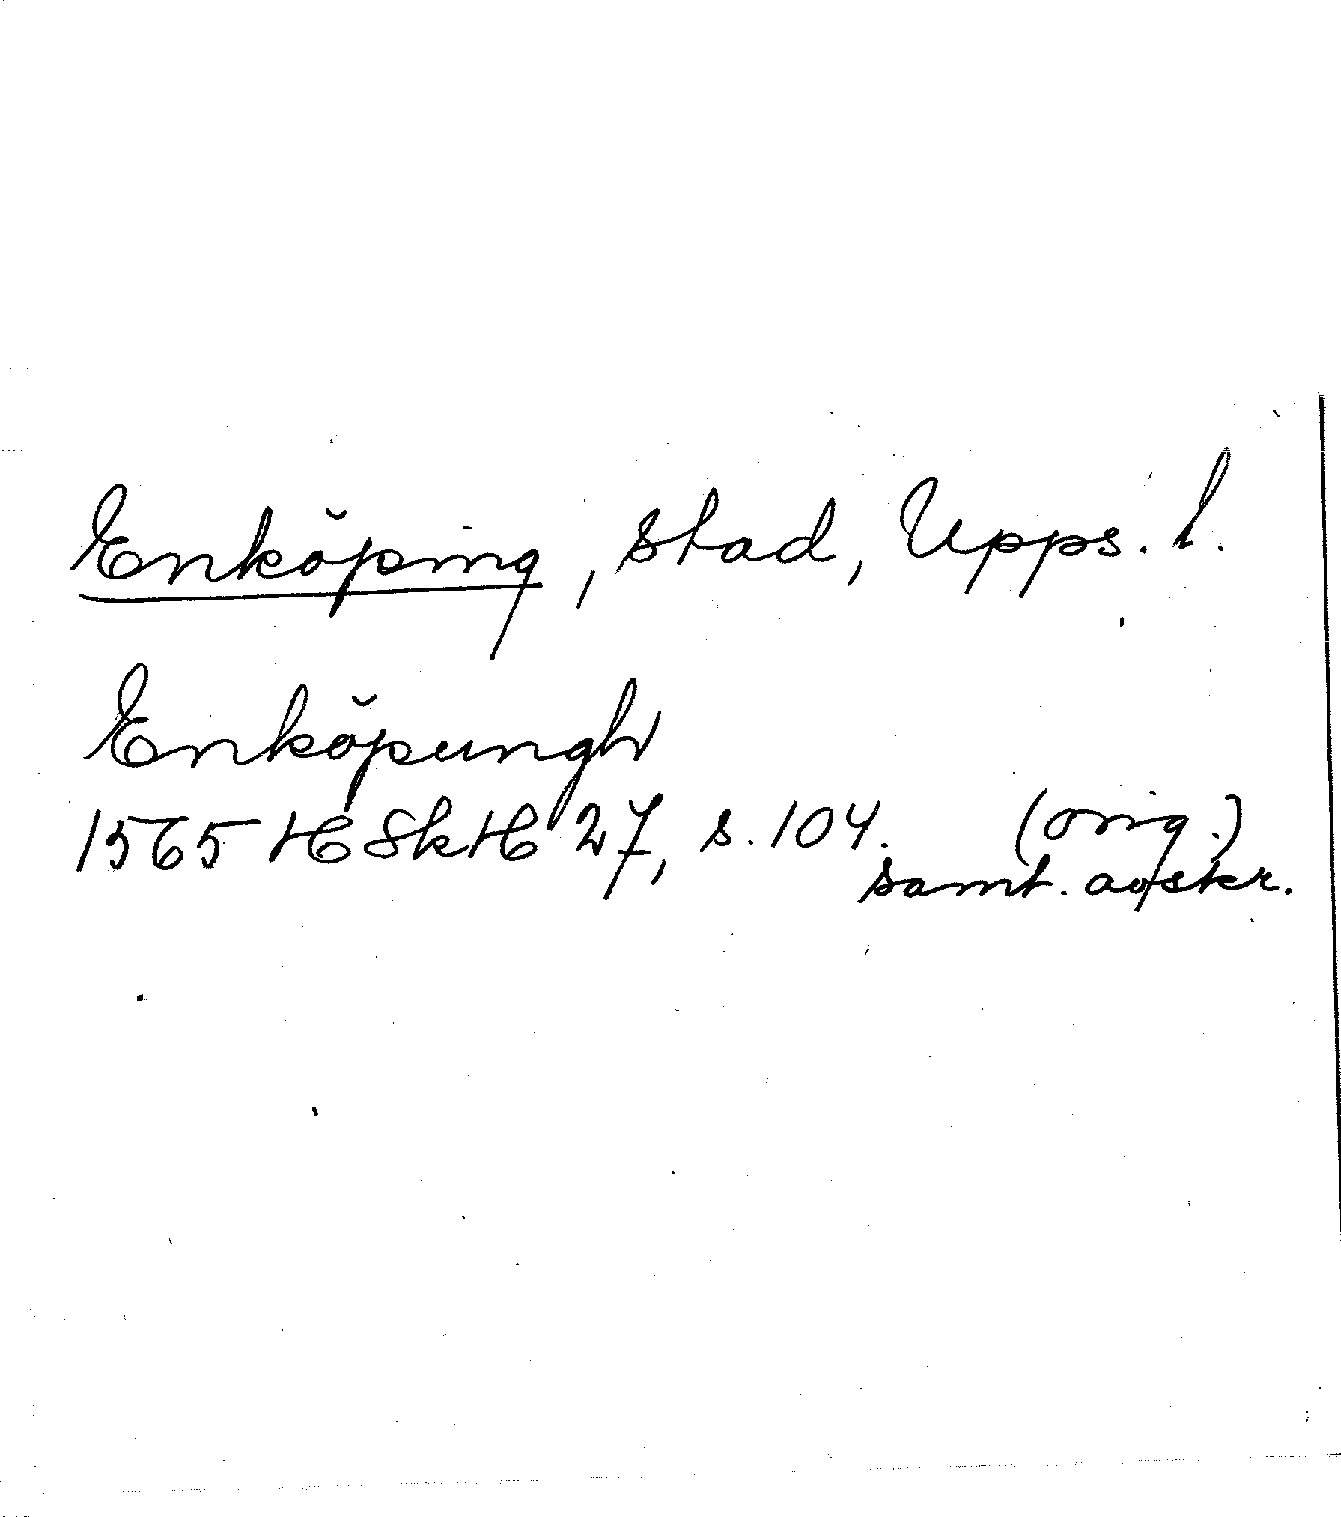 Enköping, stad, Upps. l.
Enköpungh
1565 HSkH 27, s. 104. (orig.)
samt. avskr.